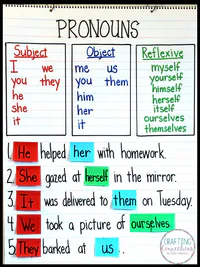 PRONOUNS
Subject
I we
you they
he
she
it
Object
me us
you them
him
her
it
Reflexive
myself
yourself
himself
herself
itself
ourselves
themselves
1. He helped her with homework.
2. She gazed at herself in the mirror.
3. It was delivered to them on Tuesday.
4. We took a picture of ourselves.
5. They barked at us.
CRAFTING
Connections